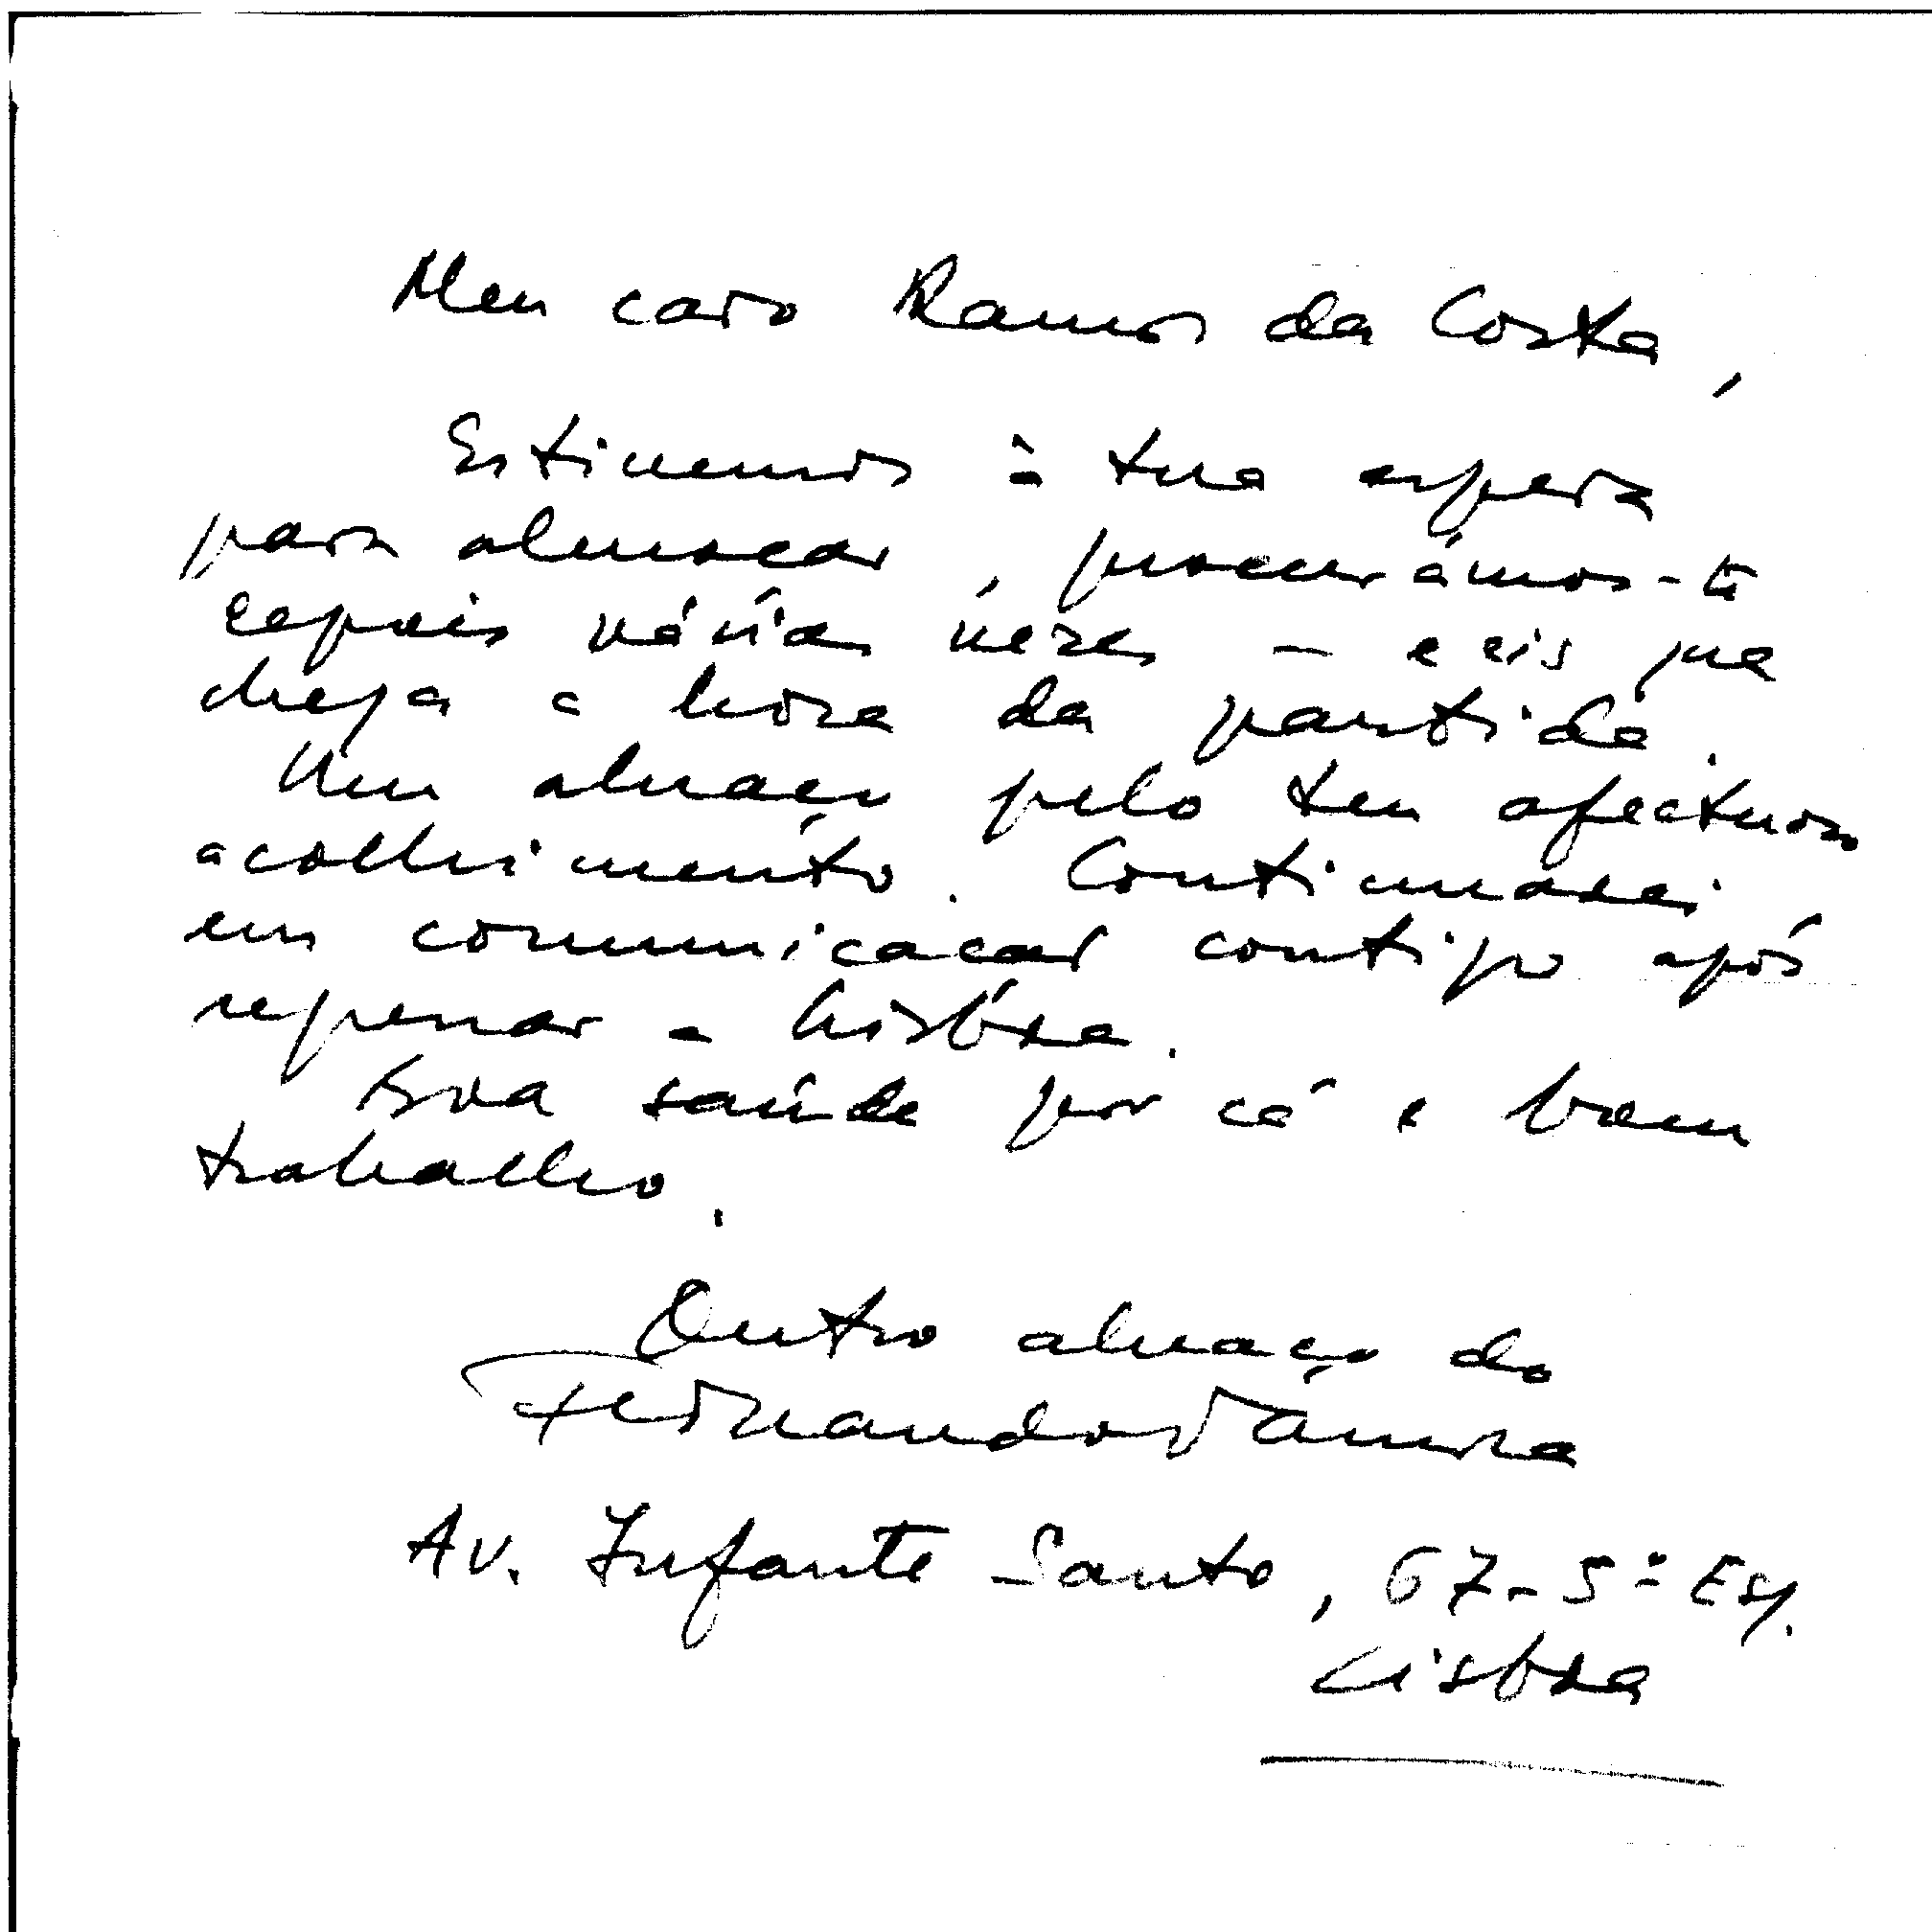 Meu caro Ramos da Costa,
Estivemos à tua espera
para almoçar, procurámos-te
depois várias vezes – e eis que
chega a hora da partida.
Um abraço pelo teu afectuoso
acolhimento. Continuarei
em comunicacar contigo após
regressar a Lisboa.
Boa saúde por cá e bom
trabalho.
Outro abraço do
Fernando Namora
Av. Infante Santo, 67-5º Esq.
Lisboa